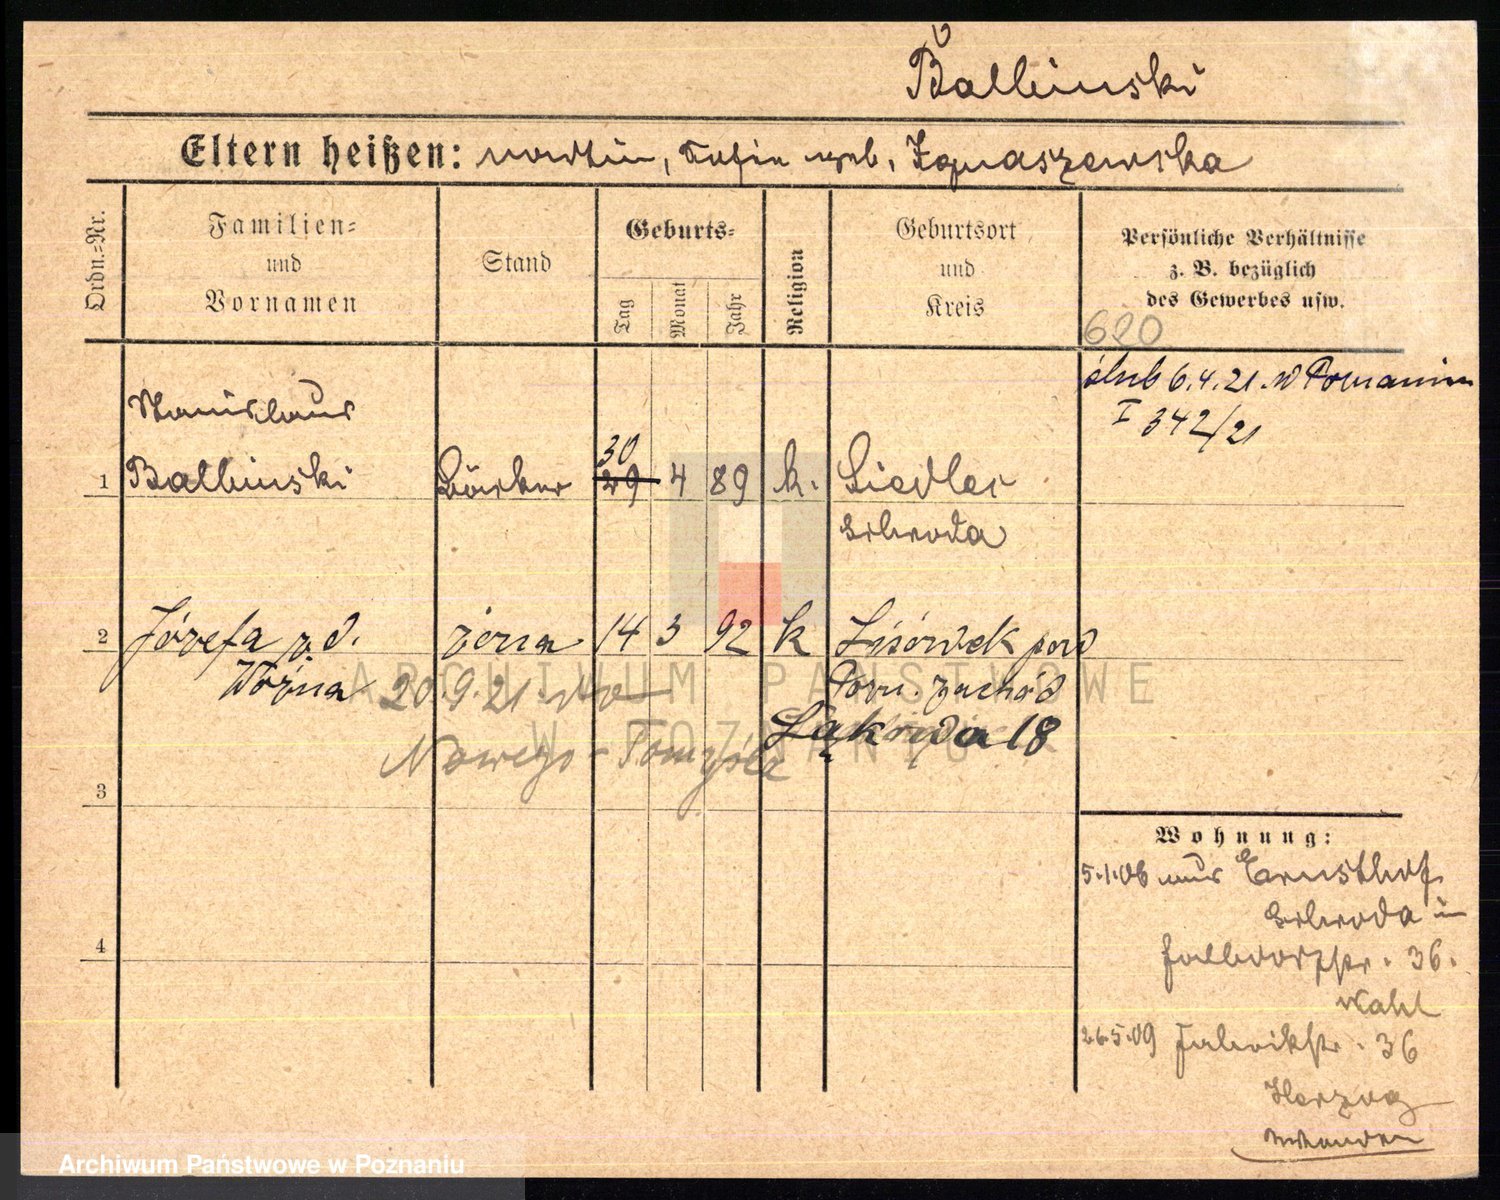 Balbinski
Eltern heißen: Martin, Sofie geb. Ignaszewska
Ordn.-Nr.
Familien-
und
Vornamen
Stand
Geburts-
Tag
Monat
Jahr
Religion
Geburtsort
und
Kreis
Persönliche Verhältnisse
z. B. bezüglich
des Gewerbes usw.
620
ślub 6.4.21. w Poznaniu
I 342/21
Stanislaus
1 Balbinski Bäcker 30 29 4 89 k. Siedlec
Schroda
2 Józefa z d. żona 14 3 92 k Lisówek pow
Woźna
Pozn. zachód
20.9.21. do
Nowego-Tomyśla
Łąkowa 18
3
4
Wohnung:
5.1.06 aus Ernsthof
Schroda in
36.
26.5.09 Fabrikstr. 36
Herzog
ARCHIWUM PAŃSTWOWE
W POZNANIU
Archiwum Państwowe w Poznaniu